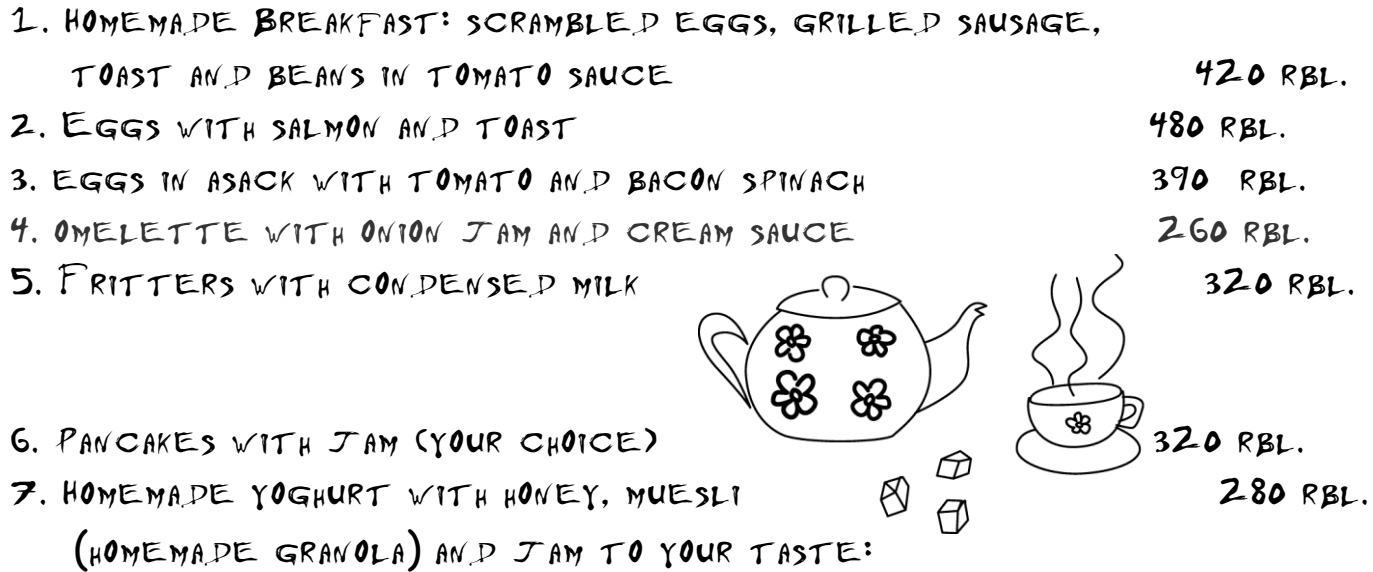 1. Homemade Breakfast: scrambled eggs, grilled sausage,
toast and beans in tomato sauce 420 rbl.
2. Eggs with salmon and toast 480 rbl.
3. Eggs in asack with tomato and bacon spinach 390 rbl.
4. Omelette with onion jam and cream sauce 260 rbl.
5. Fritters with condensed milk 320 rbl.
6. Pancakes with jam (your choice) 320 rbl.
7. Homemade yoghurt with honey, muesli 280 rbl.
(homemade granola) and jam to your taste: